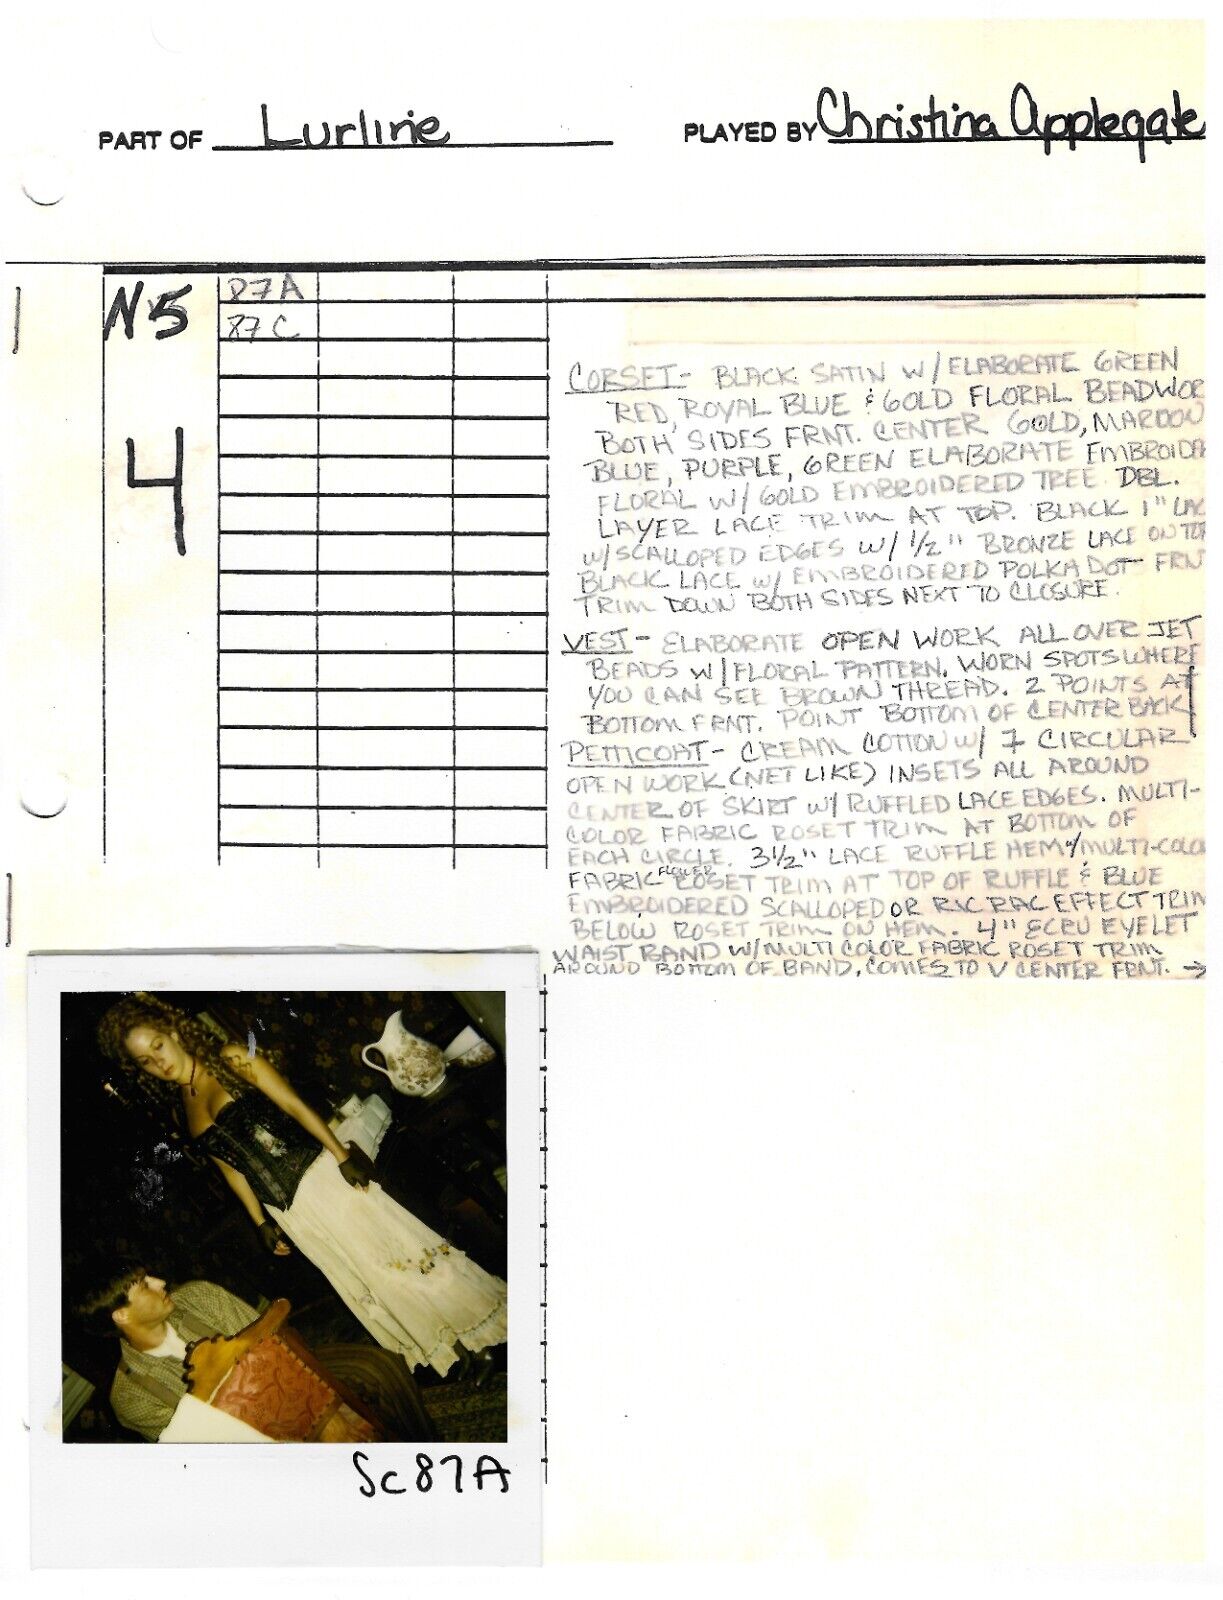 PART OF Lurline PLAYED BY Christina Applegate
N5
4
87A
87C
CORSET- BLACK SATIN W/ELABORATE GREEN
RED, ROYAL BLUE & GOLD FLORAL BEADWOR
BOTH SIDES FRNT. CENTER GOLD, MAROON
BLUE, PURPLE, GREEN ELABORATE EMBROIDE
FLORAL W/ GOLD EMBROIDERED TREE DBL.
LAYER LACE TRIM AT TOP. BLACK 1" LAC
W/SCALLOPED EDGES W/ 1/2" BRONZE LACE ON TOP
BLACK LACE W/ EMBROIDERED POLKA DOT FRNT
TRIM DOWN BOTH SIDES NEXT TO CLOSURE.
VEST- ELABORATE OPEN WORK ALL OVER JET
BEADS W/FLORAL PATTERN. WORN SPOTS WHERE
YOU CAN SEE BROWN THREAD. 2 POINTS AT
BOTTOM FRNT. POINT BOTTOM OF CENTER BACK
PETTICOAT- CREAM COTTON W/ 7 CIRCULAR
OPEN WORK (NET LIKE) INSETS ALL AROUND
CENTER OF SKIRT W/ RUFFLED LACE EDGES. MULTI-
COLOR FABRIC ROSET TRIM AT BOTTOM OF
EACH CIRCLE. 3 1/2" LACE RUFFLE HEM W/MULTI-COLO
FABRIC FLOWER ROSET TRIM AT TOP OF RUFFLE & BLUE
EMBROIDERED SCALLOPED OR RIC RAC EFFECT TRIM
BELOW ROSET TRIM ON HEM. 4" ECRU EYELET
WAIST BAND W/MULTI COLOR FABRIC ROSET TRIM
AROUND BOTTOM OF BAND, COMES TO V CENTER FRNT. →
Sc87A